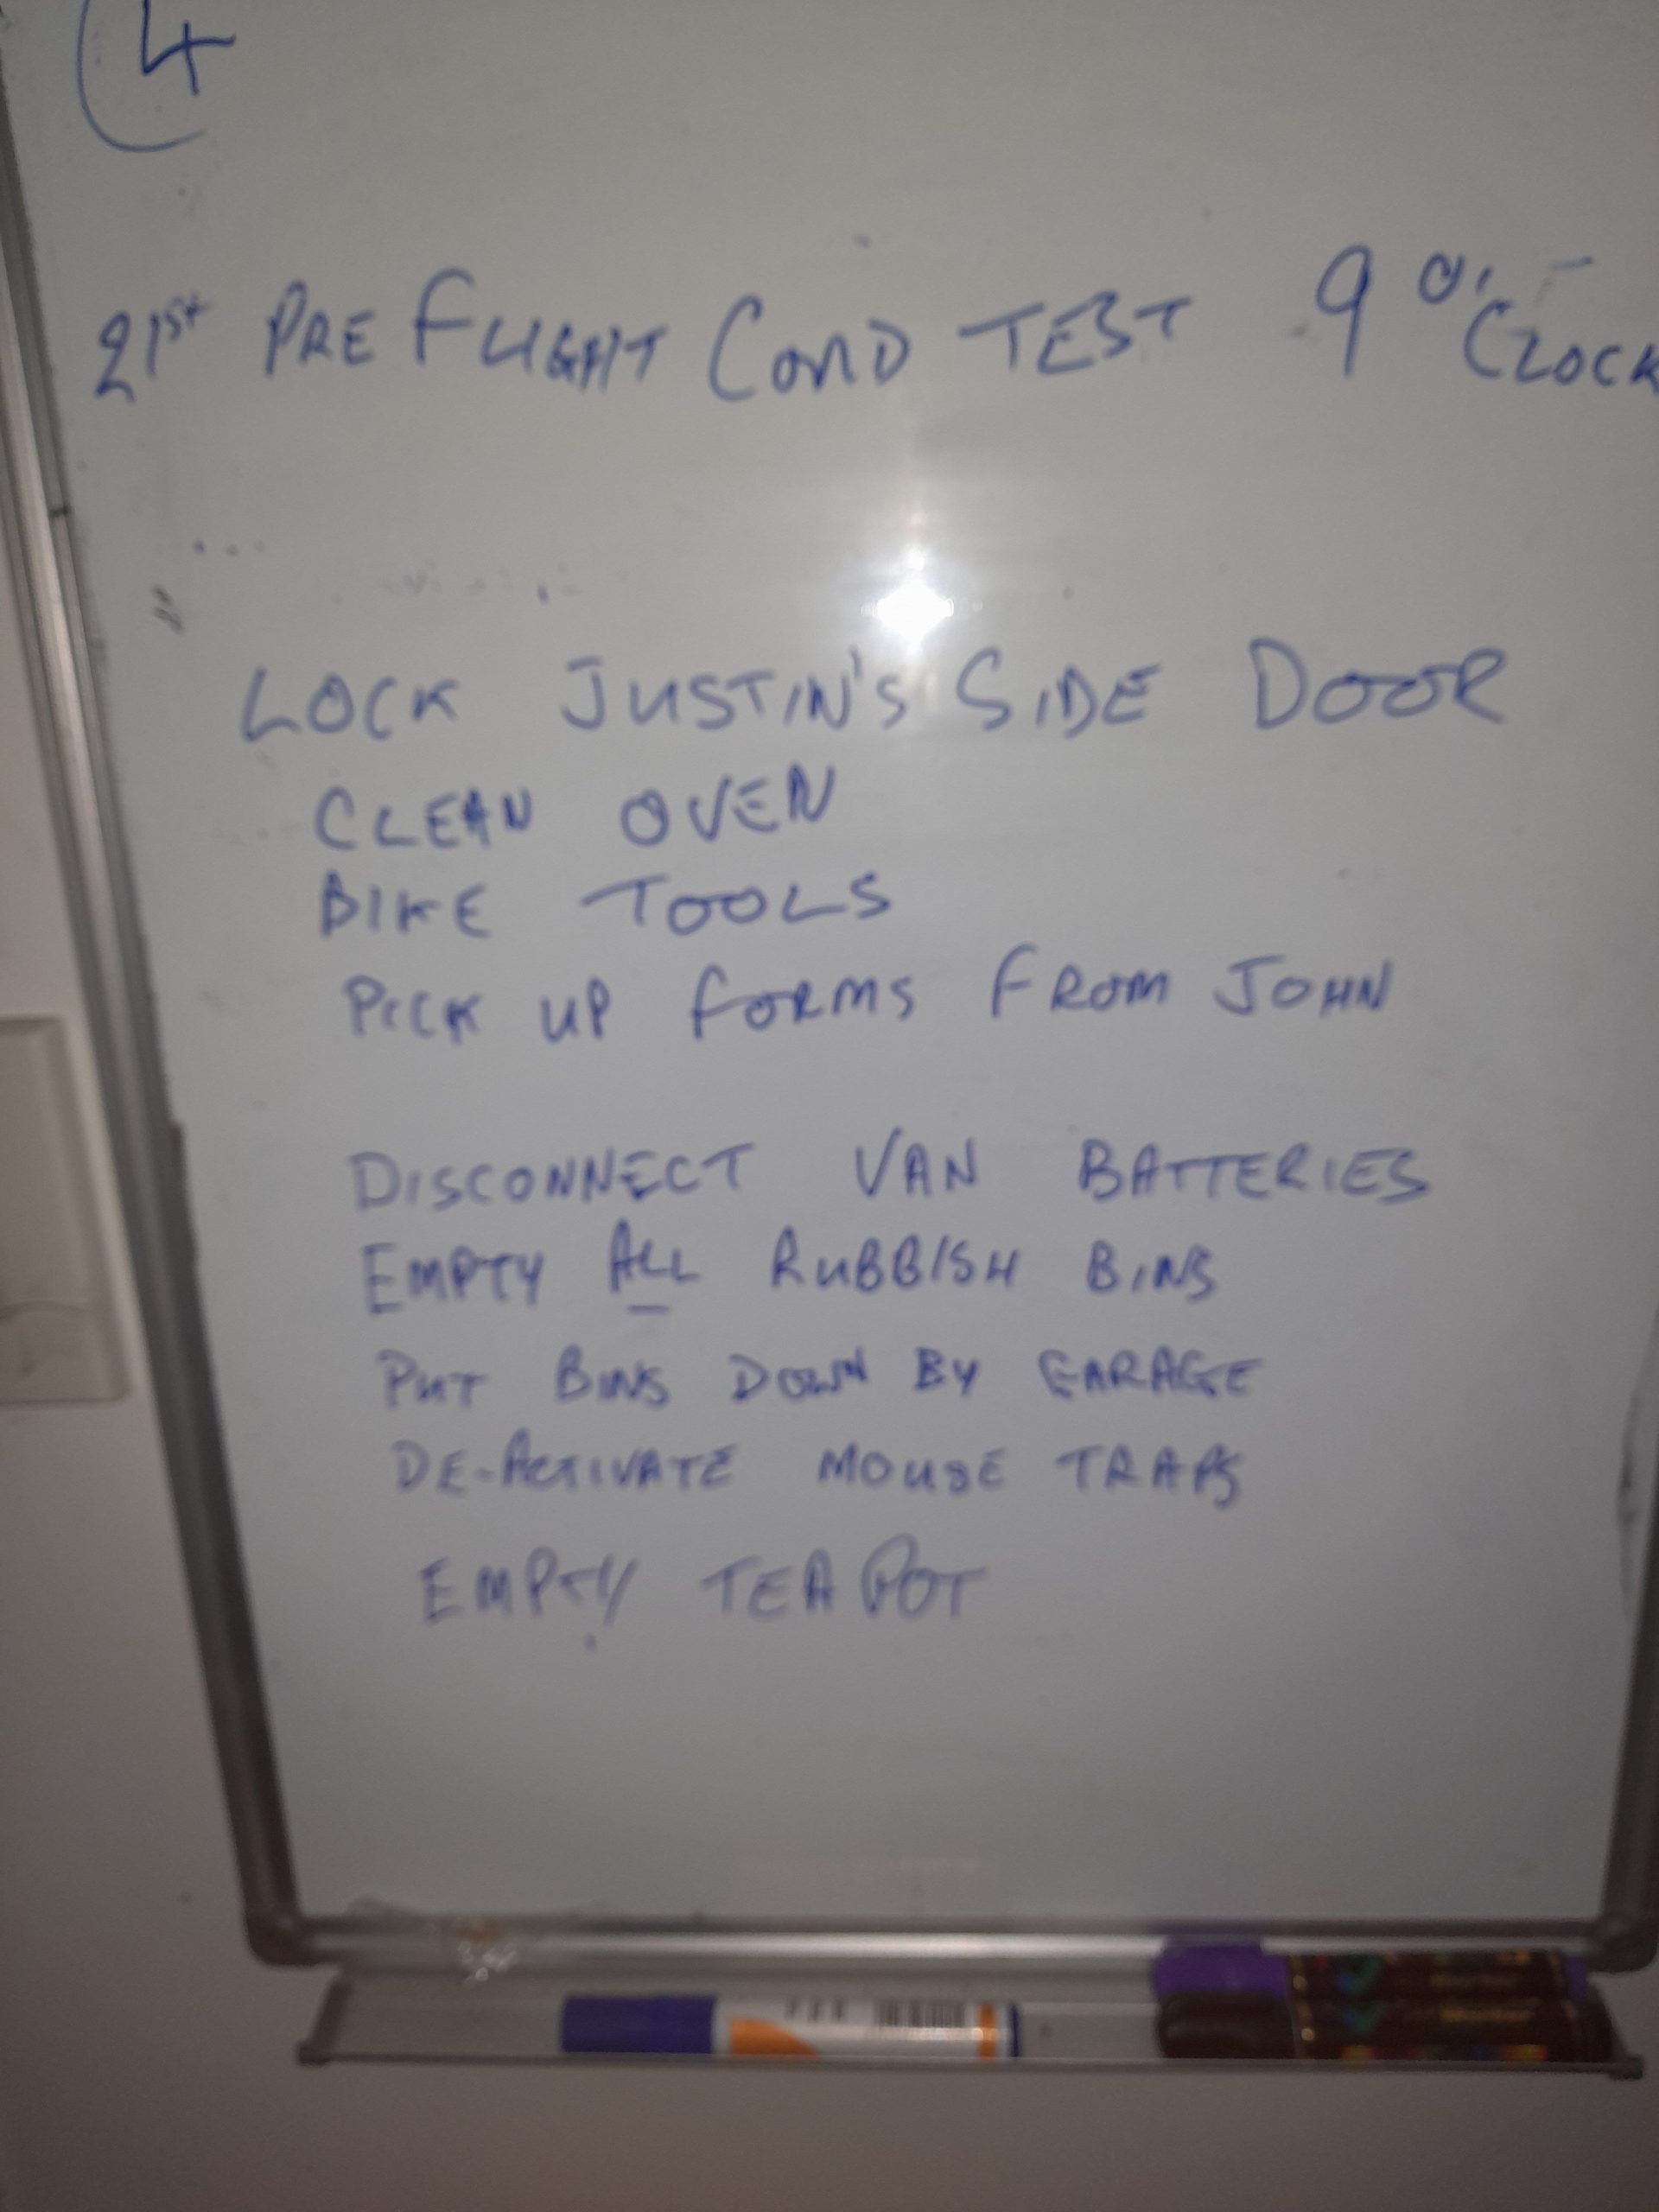 4
21st PRE FLIGHT COVID TEST 9 O'CLOCK
LOCK JUSTIN'S SIDE DOOR
CLEAN OVEN
BIKE TOOLS
PICK UP FORMS FROM JOHN
DISCONNECT VAN BATTERIES
EMPTY ALL RUBBISH BINS
PUT BINS DOWN BY GARAGE
DE-ACTIVATE MOUSE TRAPS
EMPTY TEA POT